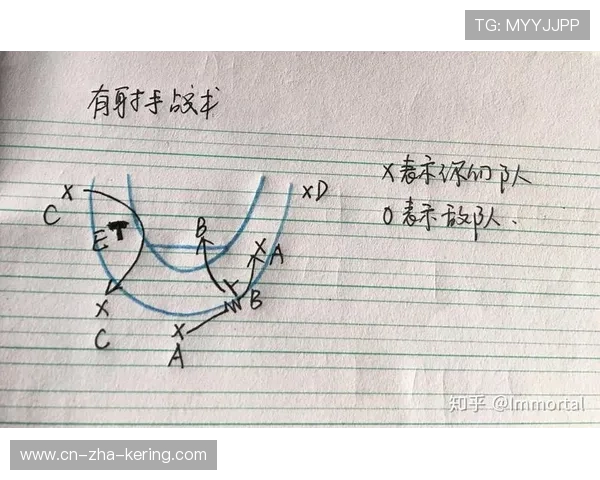 TG: MYYJJPP
有射手战术
X表示你们队
O表示敌队.
X
C
E
B
X A
XD
X
C
B
X
A
知乎 @Immortal
www.cn-zha-kering.com